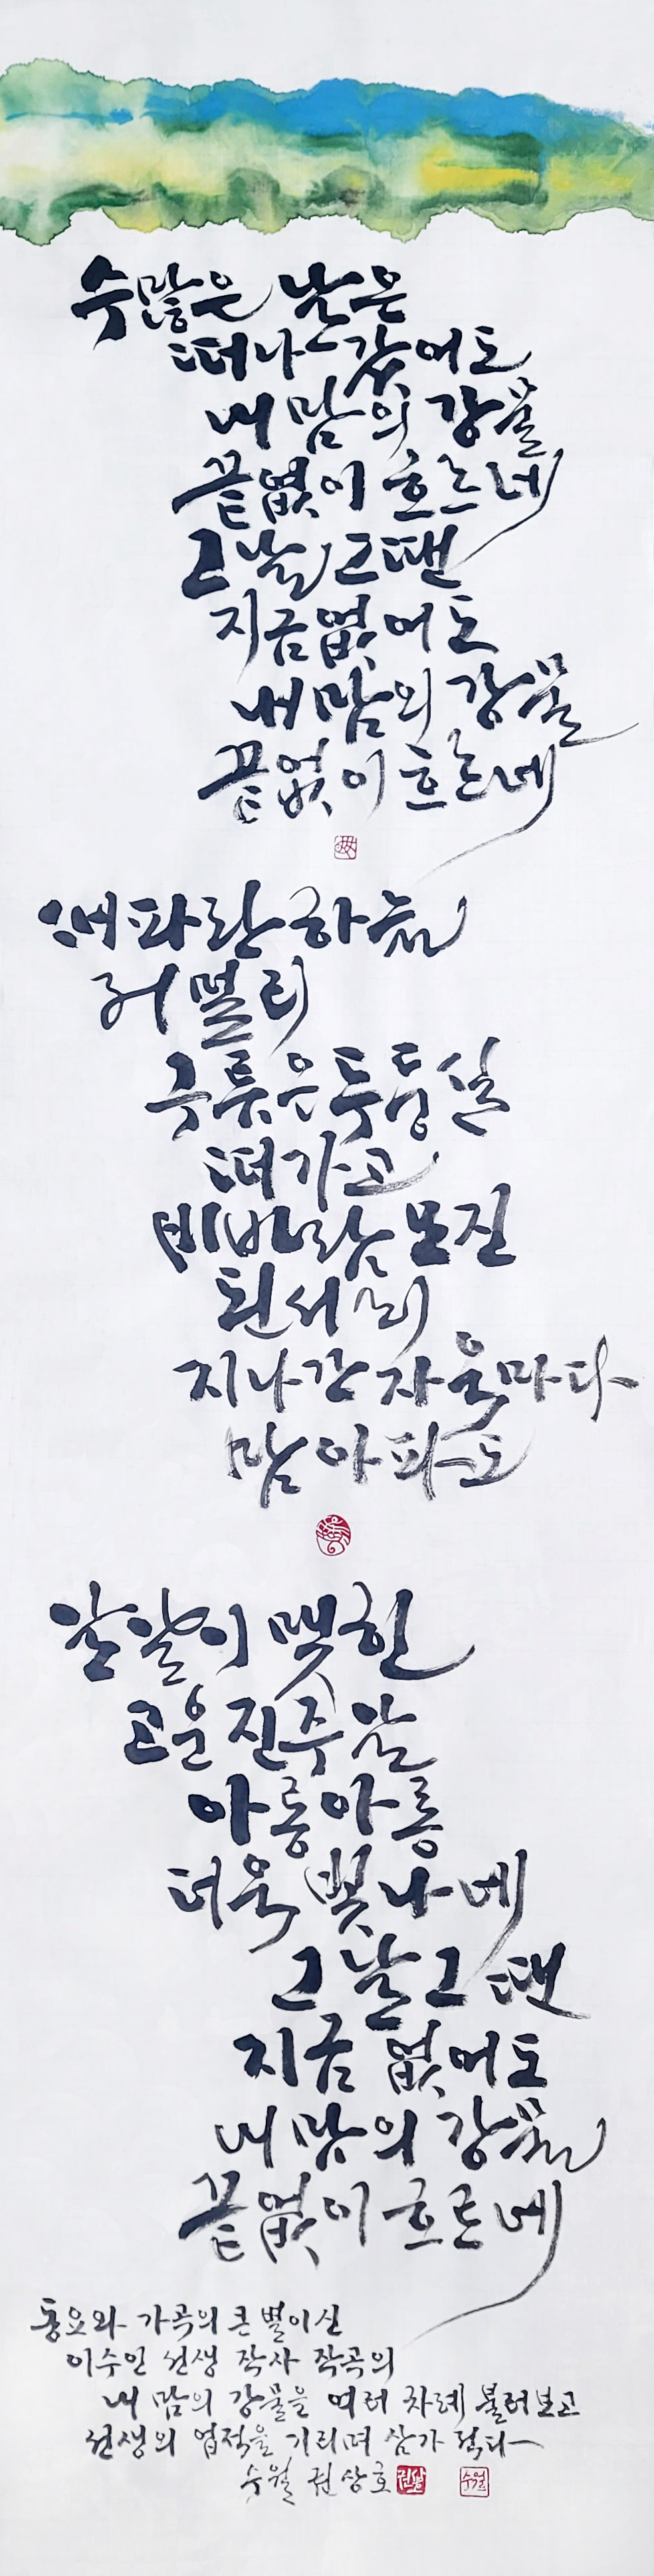 수많은 날은
떠나갔어도
내 맘의 강물
끝없이 흐르네
그날 그땐
지금 없어도
내 맘의 강물
끝없이 흐르네
새파란 하늘
저 멀리
구름은 두둥실
떠가고
비바람 모진
된서리
지나간 자욱마다
맘 아파도
알알이 맺힌
고운 진주알
아롱아롱
더욱 빛나네
그날 그땐
지금 없어도
내 맘의 강물
끝없이 흐르네
동요와 가곡의 큰 별이신
이수인 선생 작사 작곡의
내 맘의 강물을 여러 차례 불러보고
선생의 업적을 기리며 삼가 적다
수월 권상호
수월